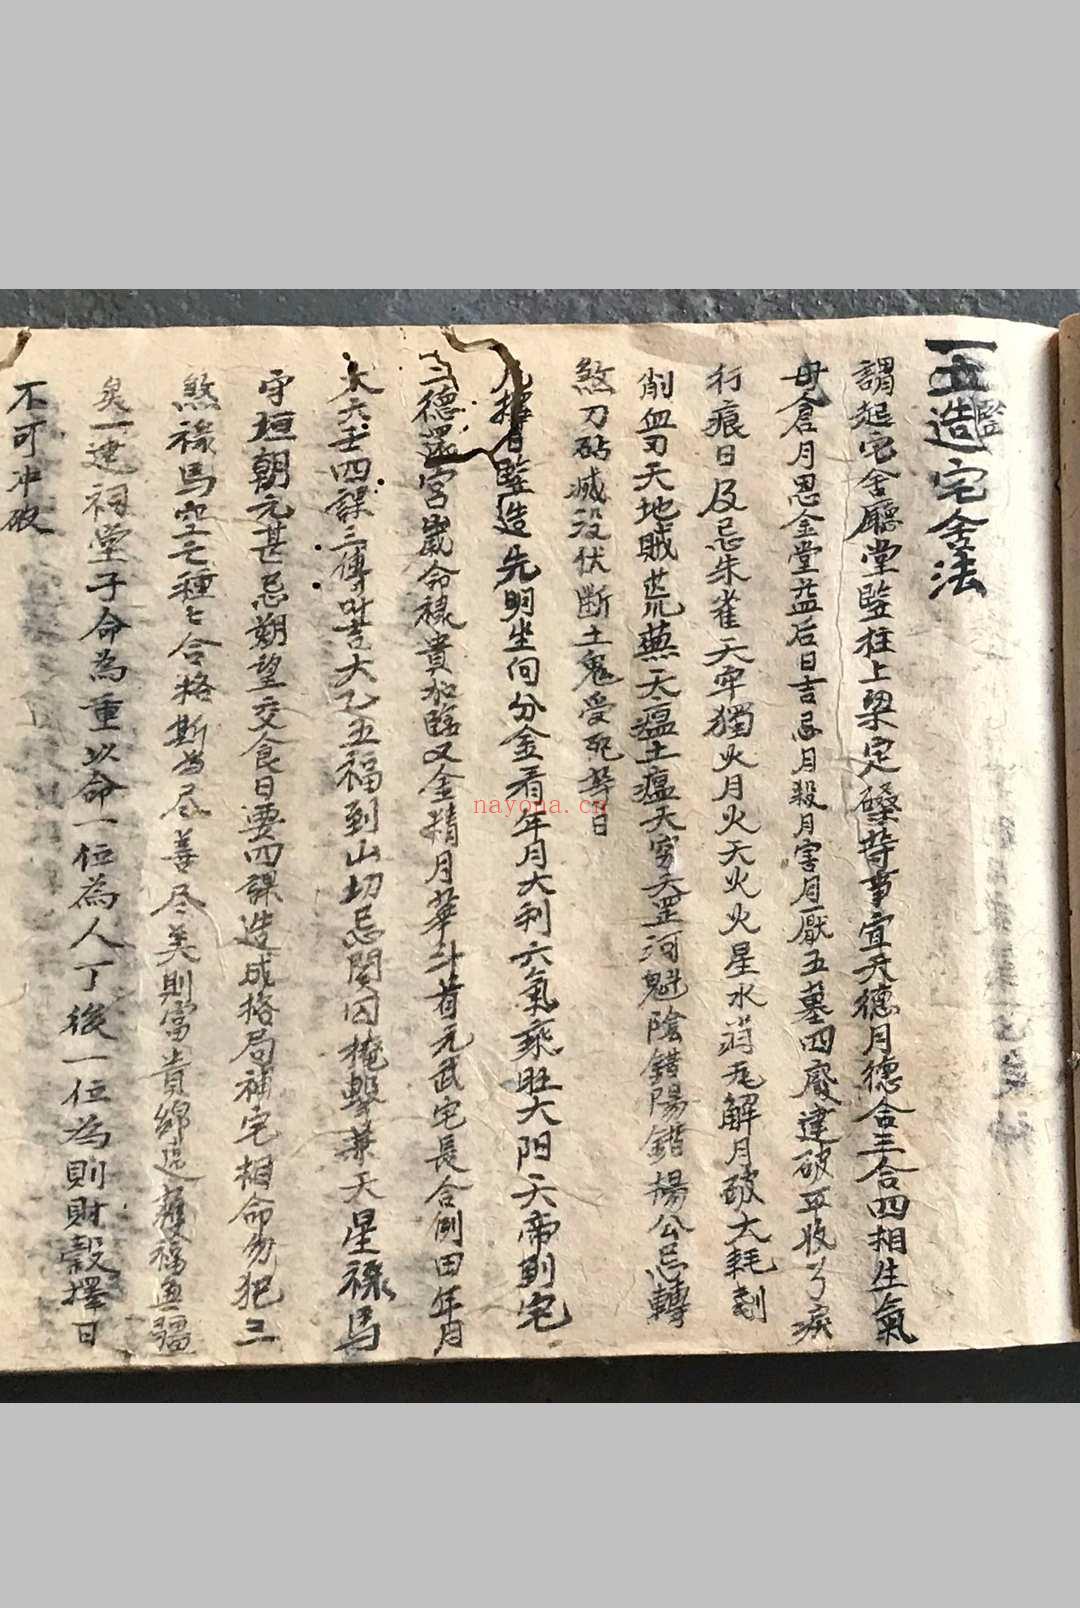 一竪造宅舍法
謂起宅舍廳堂竪柱上梁定磉等事宜天德月德合三合四相生氣
母倉月恩金堂益后日吉忌月殺月害月厭五墓四廢建破平收
行痕日及忌朱雀天牢獨火月火天火火星水消瓦解月破大耗
削血刃天地賊荒蕪天瘟土瘟天窮天罡河魁陰錯陽錯楊公忌轉
煞刀砧滅没伏断土鬼受死等日
凡擇日竪造先明坐向分金看年月大利六氣乘旺大阳天帝到宅
二德還宮嵗命禄貴加臨又金精月華斗首元武宅長合例田年月
大六壬四課三傳大乙五福到山切忌関囚掩擊兼天星禄馬
守垣朝元甚忌朔望交食日要四課造成格局補宅相命勿犯三
煞禄馬空亡種々合格斯為尽善尽美則富貴綿遠福無疆
矣一建祠堂子命為重以命一位為人丁後一位為則財穀擇日
不可冲破
nayona.cn